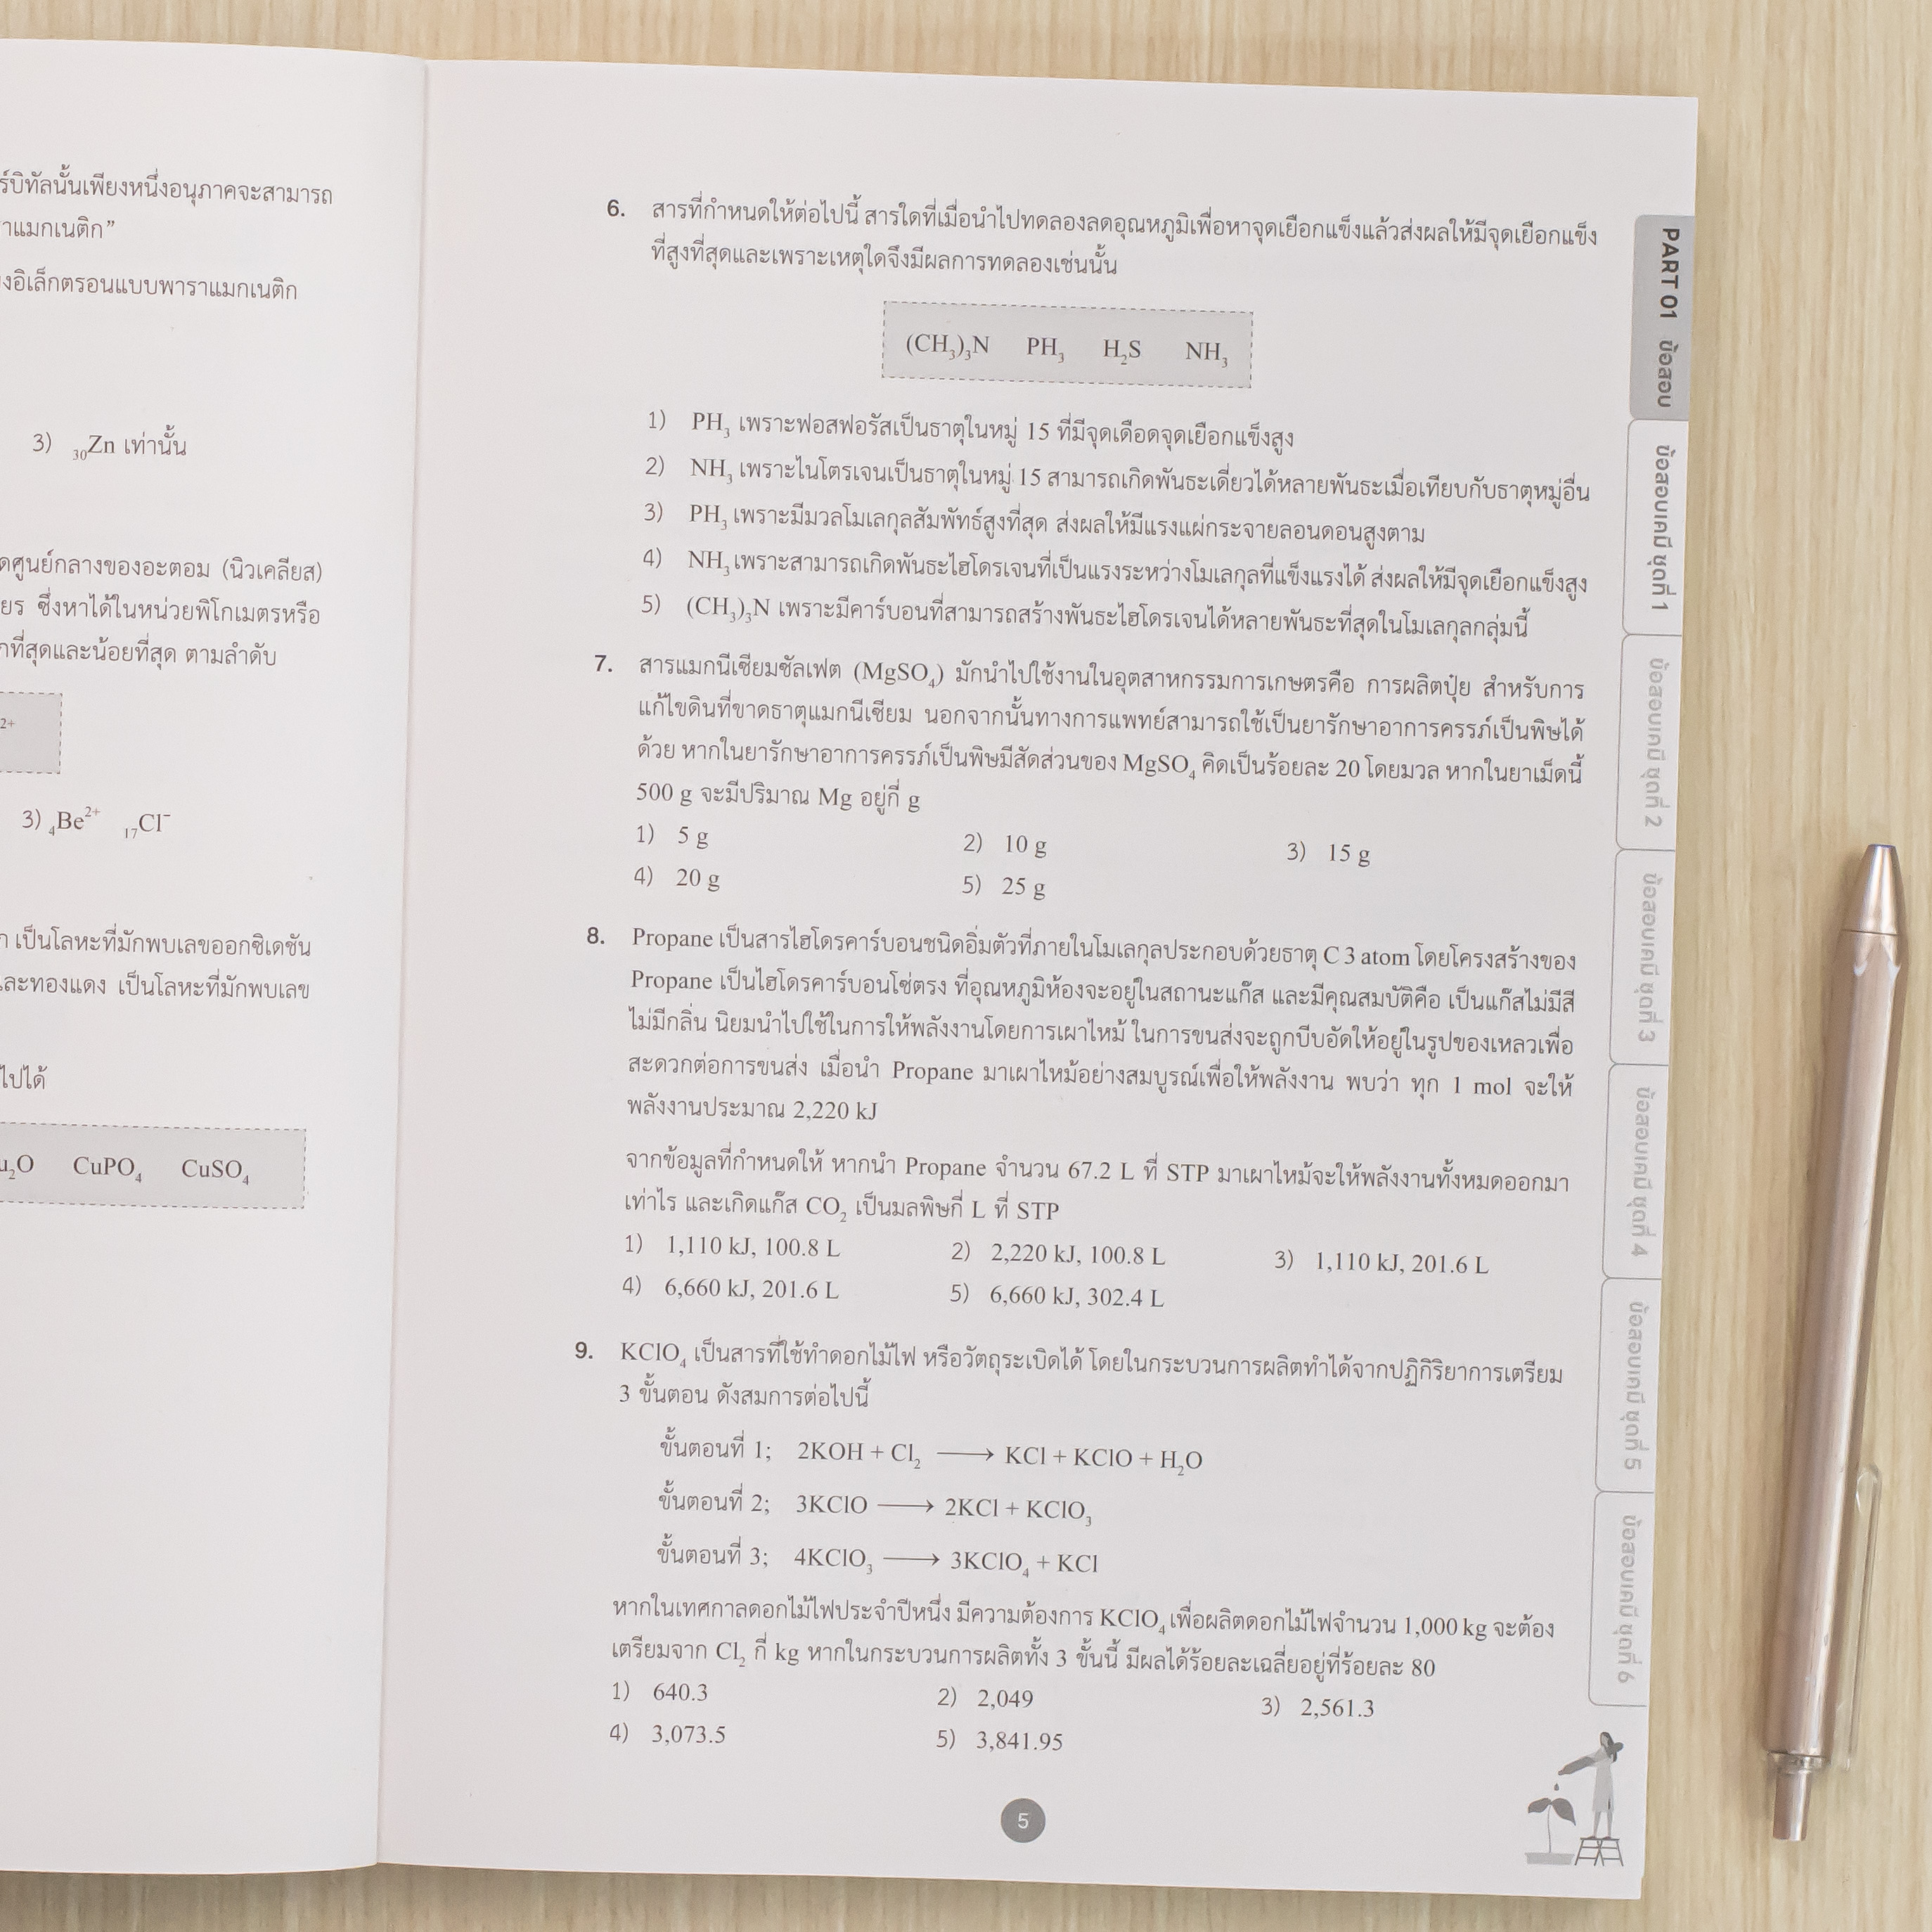 ร์บิทัลนั้นเพียงหนึ่งอนุภาคจะสามารถ
าแมกเนติก”
งอิเล็กตรอนแบบพาราแมกเนติก
3) ₃₀Zn เท่านั้น
ดศูนย์กลางของอะตอม (นิวเคลียส)
ยร ซึ่งหาได้ในหน่วยพิโกเมตรหรือ
กที่สุดและน้อยที่สุด ตามลำดับ
2+
3) ₄Be²⁺ ₁₇Cl⁻
เป็นโลหะที่มักพบเลขออกซิเดชัน
และทองแดง เป็นโลหะที่มักพบเลข
ไปได้
u₂O CuPO₄ CuSO₄
6. สารที่กำหนดให้ต่อไปนี้ สารใดที่เมื่อนำไปทดลองลดอุณหภูมิเพื่อหาจุดเยือกแข็งแล้วส่งผลให้มีจุดเยือกแข็ง
ที่สูงที่สุดและเพราะเหตุใดจึงมีผลการทดลองเช่นนั้น
(CH₃)₃N PH₃ H₂S NH₃
1) PH₃ เพราะฟอสฟอรัสเป็นธาตุในหมู่ 15 ที่มีจุดเดือดจุดเยือกแข็งสูง
2) NH₃ เพราะไนโตรเจนเป็นธาตุในหมู่ 15 สามารถเกิดพันธะเดี่ยวได้หลายพันธะเมื่อเทียบกับธาตุหมู่อื่น
3) PH₃ เพราะมีมวลโมเลกุลสัมพัทธ์สูงที่สุด ส่งผลให้มีแรงแผ่กระจายลอนดอนสูงตาม
4) NH₃ เพราะสามารถเกิดพันธะไฮโดรเจนที่เป็นแรงระหว่างโมเลกุลที่แข็งแรงได้ ส่งผลให้มีจุดเยือกแข็งสูง
5) (CH₃)₃N เพราะมีคาร์บอนที่สามารถสร้างพันธะไฮโดรเจนได้หลายพันธะที่สุดในโมเลกุลกลุ่มนี้
7. สารแมกนีเซียมซัลเฟต (MgSO₄) มักนำไปใช้งานในอุตสาหกรรมการเกษตรคือ การผลิตปุ๋ย สำหรับการ
แก้ไขดินที่ขาดธาตุแมกนีเซียม นอกจากนั้นทางการแพทย์สามารถใช้เป็นยารักษาอาการครรภ์เป็นพิษได้
ด้วย หากในยารักษาอาการครรภ์เป็นพิษมีสัดส่วนของ MgSO₄ คิดเป็นร้อยละ 20 โดยมวล หากในยาเม็ดนี้
500 g จะมีปริมาณ Mg อยู่กี่ g
1) 5 g 2) 10 g 3) 15 g
4) 20 g 5) 25 g
8. Propane เป็นสารไฮโดรคาร์บอนชนิดอิ่มตัวที่ภายในโมเลกุลประกอบด้วยธาตุ C 3 atom โดยโครงสร้างของ
Propane เป็นไฮโดรคาร์บอนโซ่ตรง ที่อุณหภูมิห้องจะอยู่ในสถานะแก๊ส และมีคุณสมบัติคือ เป็นแก๊สไม่มีสี
ไม่มีกลิ่น นิยมนำไปใช้ในการให้พลังงานโดยการเผาไหม้ ในการขนส่งจะถูกบีบอัดให้อยู่ในรูปของเหลวเพื่อ
สะดวกต่อการขนส่ง เมื่อนำ Propane มาเผาไหม้อย่างสมบูรณ์เพื่อให้พลังงาน พบว่า ทุก 1 mol จะให้
พลังงานประมาณ 2,220 kJ
จากข้อมูลที่กำหนดให้ หากนำ Propane จำนวน 67.2 L ที่ STP มาเผาไหม้จะให้พลังงานทั้งหมดออกมา
เท่าไร และเกิดแก๊ส CO₂ เป็นมลพิษกี่ L ที่ STP
1) 1,110 kJ, 100.8 L 2) 2,220 kJ, 100.8 L 3) 1,110 kJ, 201.6 L
4) 6,660 kJ, 201.6 L 5) 6,660 kJ, 302.4 L
9. KClO₄ เป็นสารที่ใช้ทำดอกไม้ไฟ หรือวัตถุระเบิดได้ โดยในกระบวนการผลิตทำได้จากปฏิกิริยาการเตรียม
3 ขั้นตอน ดังสมการต่อไปนี้
ขั้นตอนที่ 1; 2KOH + Cl₂ ⟶ KCl + KClO + H₂O
ขั้นตอนที่ 2; 3KClO ⟶ 2KCl + KClO₃
ขั้นตอนที่ 3; 4KClO₃ ⟶ 3KClO₄ + KCl
หากในเทศกาลดอกไม้ไฟประจำปีหนึ่ง มีความต้องการ KClO₄ เพื่อผลิตดอกไม้ไฟจำนวน 1,000 kg จะต้อง
เตรียมจาก Cl₂ กี่ kg หากในกระบวนการผลิตทั้ง 3 ขั้นนี้ มีผลได้ร้อยละเฉลี่ยอยู่ที่ร้อยละ 80
1) 640.3 2) 2,049 3) 2,561.3
4) 3,073.5 5) 3,841.95
5
PART 01 ข้อสอบ
ข้อสอบเคมี ชุดที่ 1
ข้อสอบเคมี ชุดที่ 2
ข้อสอบเคมี ชุดที่ 3
ข้อสอบเคมี ชุดที่ 4
ข้อสอบเคมี ชุดที่ 5
ข้อสอบเคมี ชุดที่ 6